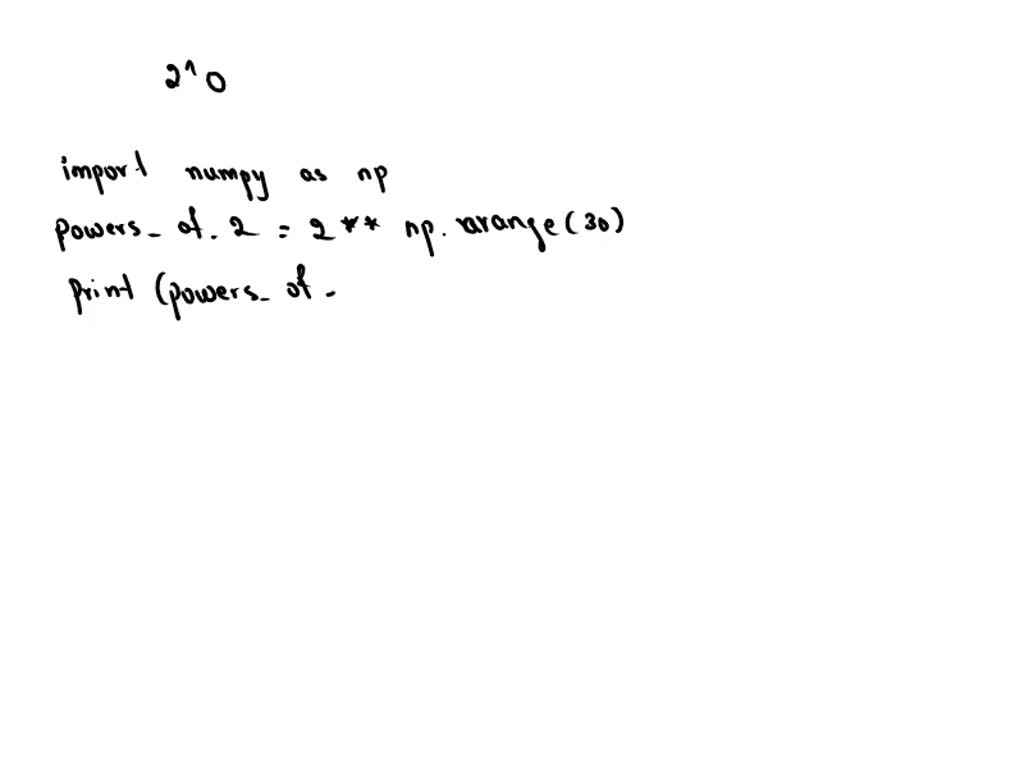 2^0
import numpy as np
powers_of_2 = 2 ** np.arange(30)
print (powers_of_